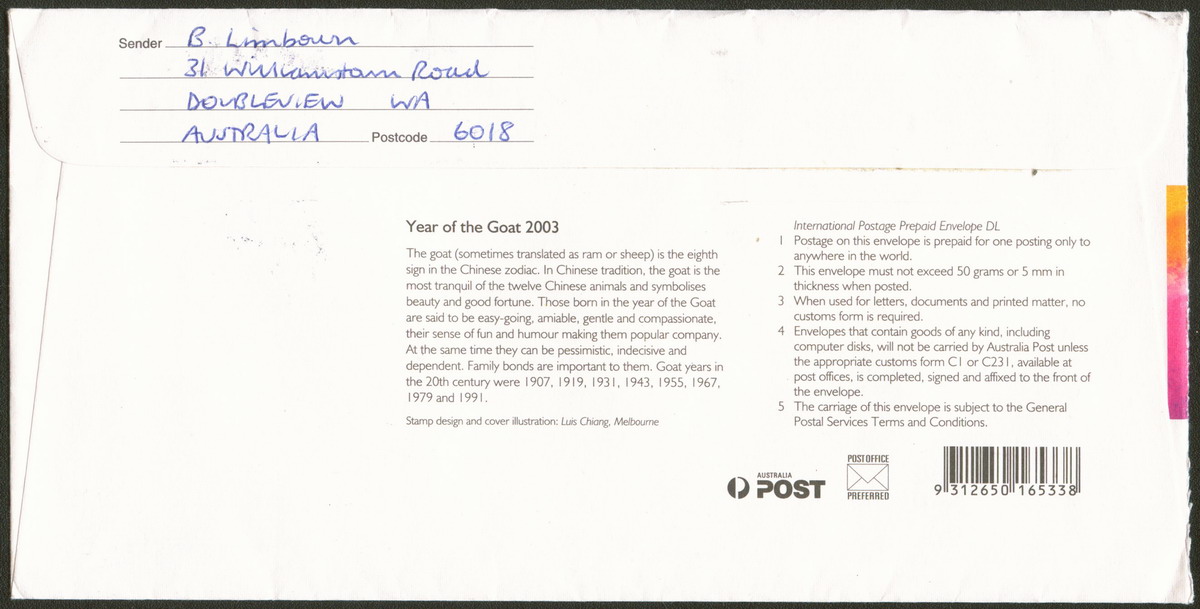 Sender B. Limbourn
31 Williamstown Road
DOUBLEVIEW WA
AUSTRALIA Postcode 6018
Year of the Goat 2003
The goat (sometimes translated as ram or sheep) is the eighth
sign in the Chinese zodiac. In Chinese tradition, the goat is the
most tranquil of the twelve Chinese animals and symbolises
beauty and good fortune. Those born in the year of the Goat
are said to be easy-going, amiable, gentle and compassionate,
their sense of fun and humour making them popular company.
At the same time they can be pessimistic, indecisive and
dependent. Family bonds are important to them. Goat years in
the 20th century were 1907, 1919, 1931, 1943, 1955, 1967,
1979 and 1991.
Stamp design and cover illustration: Luis Chiang, Melbourne
International Postage Prepaid Envelope DL
1 Postage on this envelope is prepaid for one posting only to
anywhere in the world.
2 This envelope must not exceed 50 grams or 5 mm in
thickness when posted.
3 When used for letters, documents and printed matter, no
customs form is required.
4 Envelopes that contain goods of any kind, including
computer disks, will not be carried by Australia Post unless
the appropriate customs form C1 or C231, available at
post offices, is completed, signed and affixed to the front of
the envelope.
5 The carriage of this envelope is subject to the General
Postal Services Terms and Conditions.
AUSTRALIA
POST
POST OFFICE
PREFERRED
9 312650 165338